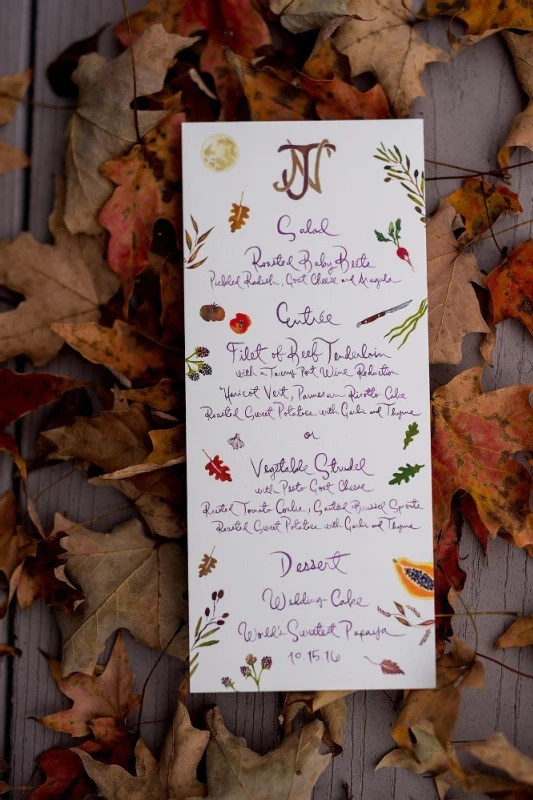 JN
Salad
Roasted Baby Beets
Pickled Radish, Goat Cheese and Arugula
Entrée
Filet of Beef Tenderloin
with a Tawny Port Wine Reduction
Haricot Vert, Parmesan Risotto Cake
Roasted Sweet Potatoes with Garlic and Thyme
or
Vegetable Strudel
with Pesto Goat Cheese
Roasted Tomato Coulis, Sautéed Brussel Sprouts
Roasted Sweet Potatoes with Garlic and Thyme
Dessert
Wedding Cake
World's Sweetest Papaya
10.15.16